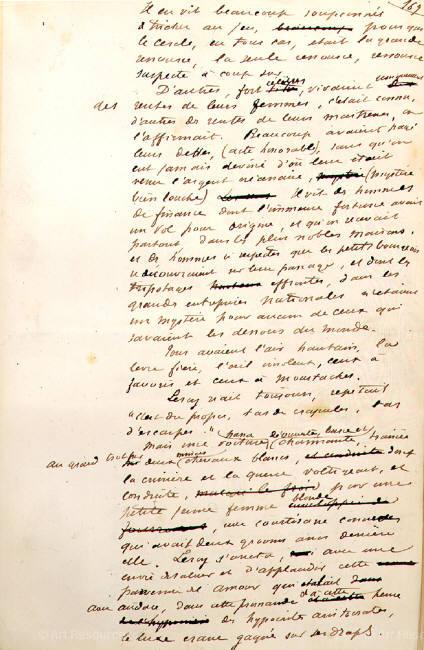 169
Il en vit beaucoup soupçonnés
de tricher au jeu, beaucoup pour qui
le cercle, en tous cas, était la grande
ressource, la seule ressource, ressource
suspecte à coup sûr.
D'autres, fort célèbres, vivaient uniquement
des rentes de leurs femmes, c'était connu,
d'autres des rentes de leurs maîtresses, on
l'affirmait. Beaucoup avaient payé
leurs dettes, (acte honorable), sans qu'on
eut jamais deviné d'où leur était
venu l'argent nécessaire, (mystère
bien louche) Il vit des hommes
de finance dont l'immense fortune avait
un vol pour origine, et qu'on recevait
partout, dans les plus nobles maisons,
et des hommes si respectés que les petits bourgeois
se découvraient sur leur passage, et dont les
tripotages effrontés, dans les
grandes entreprises nationales n'étaient
un mystère pour aucun de ceux qui
savaient les dessous du monde.
Tous avaient l'air hautain, la
lèvre fière, l'œil insolent, ceux à
favoris et ceux à moustaches.
Leroy riait toujours, répétant
"c'est du propre, tas de crapules, tas
d'escarpes." passa découverte, basse et
Mais une voiture charmante, traînée
au grand trot par deux minces chevaux blancs, dont
la crinière et la queue voltigeaient, et
conduite, par une
petite jeune femme blonde
une courtisane connue
qui avait deux grooms assis derrière
elle. Leroy s'arrêta avec une
envie de saluer et d'applaudir cette
parvenue de l'amour qui étalait
avec audace, dans cette promenade à cette heure
des hypocrites aristocrates,
le luxe crâne gagné sur ses draps.
© Art Resource